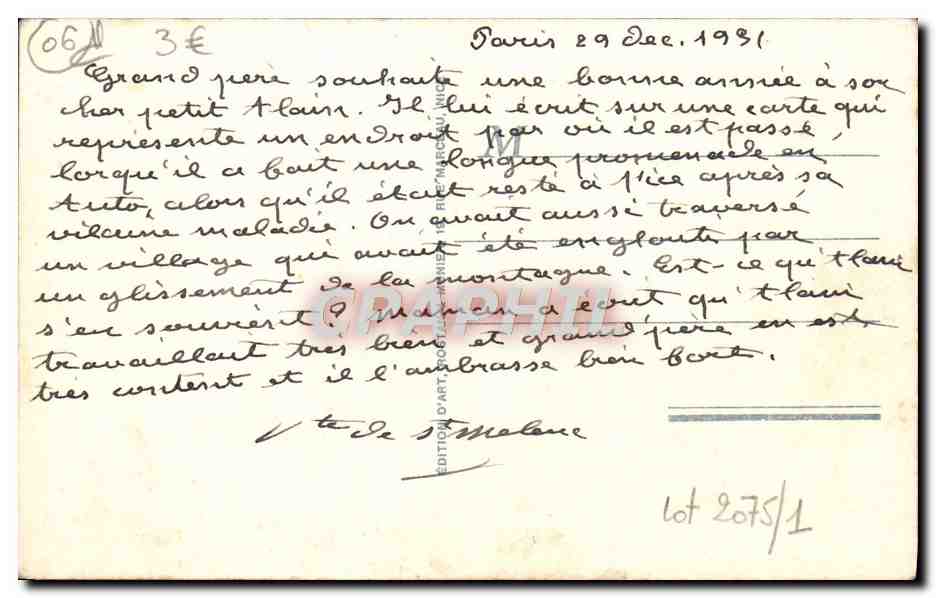 06
3€
Paris 29 dec. 1931
Grand père souhaite une bonne année à son
cher petit Alain. Il lui écrit sur une carte qui
représente un endroit par où il est passé,
lorqu'il a fait une longue promenade en
auto, alors qu'il était resté à Nice après sa
vilaine maladie. On avait aussi traversé
un village qui avait été englouti par
un glissement de la montagne. Est-ce qu'Alain
s'en souvient? Maman a écrit qu'Alain
travaillait très bien et grand'père en est
très content et il l'embrasse bien fort.
Vte de St
M
ÉDITION D'ART, ROSTAN
MUNIER, 19, RUE MARCEAU, NICE
CPAPHIL
lot 2075/1